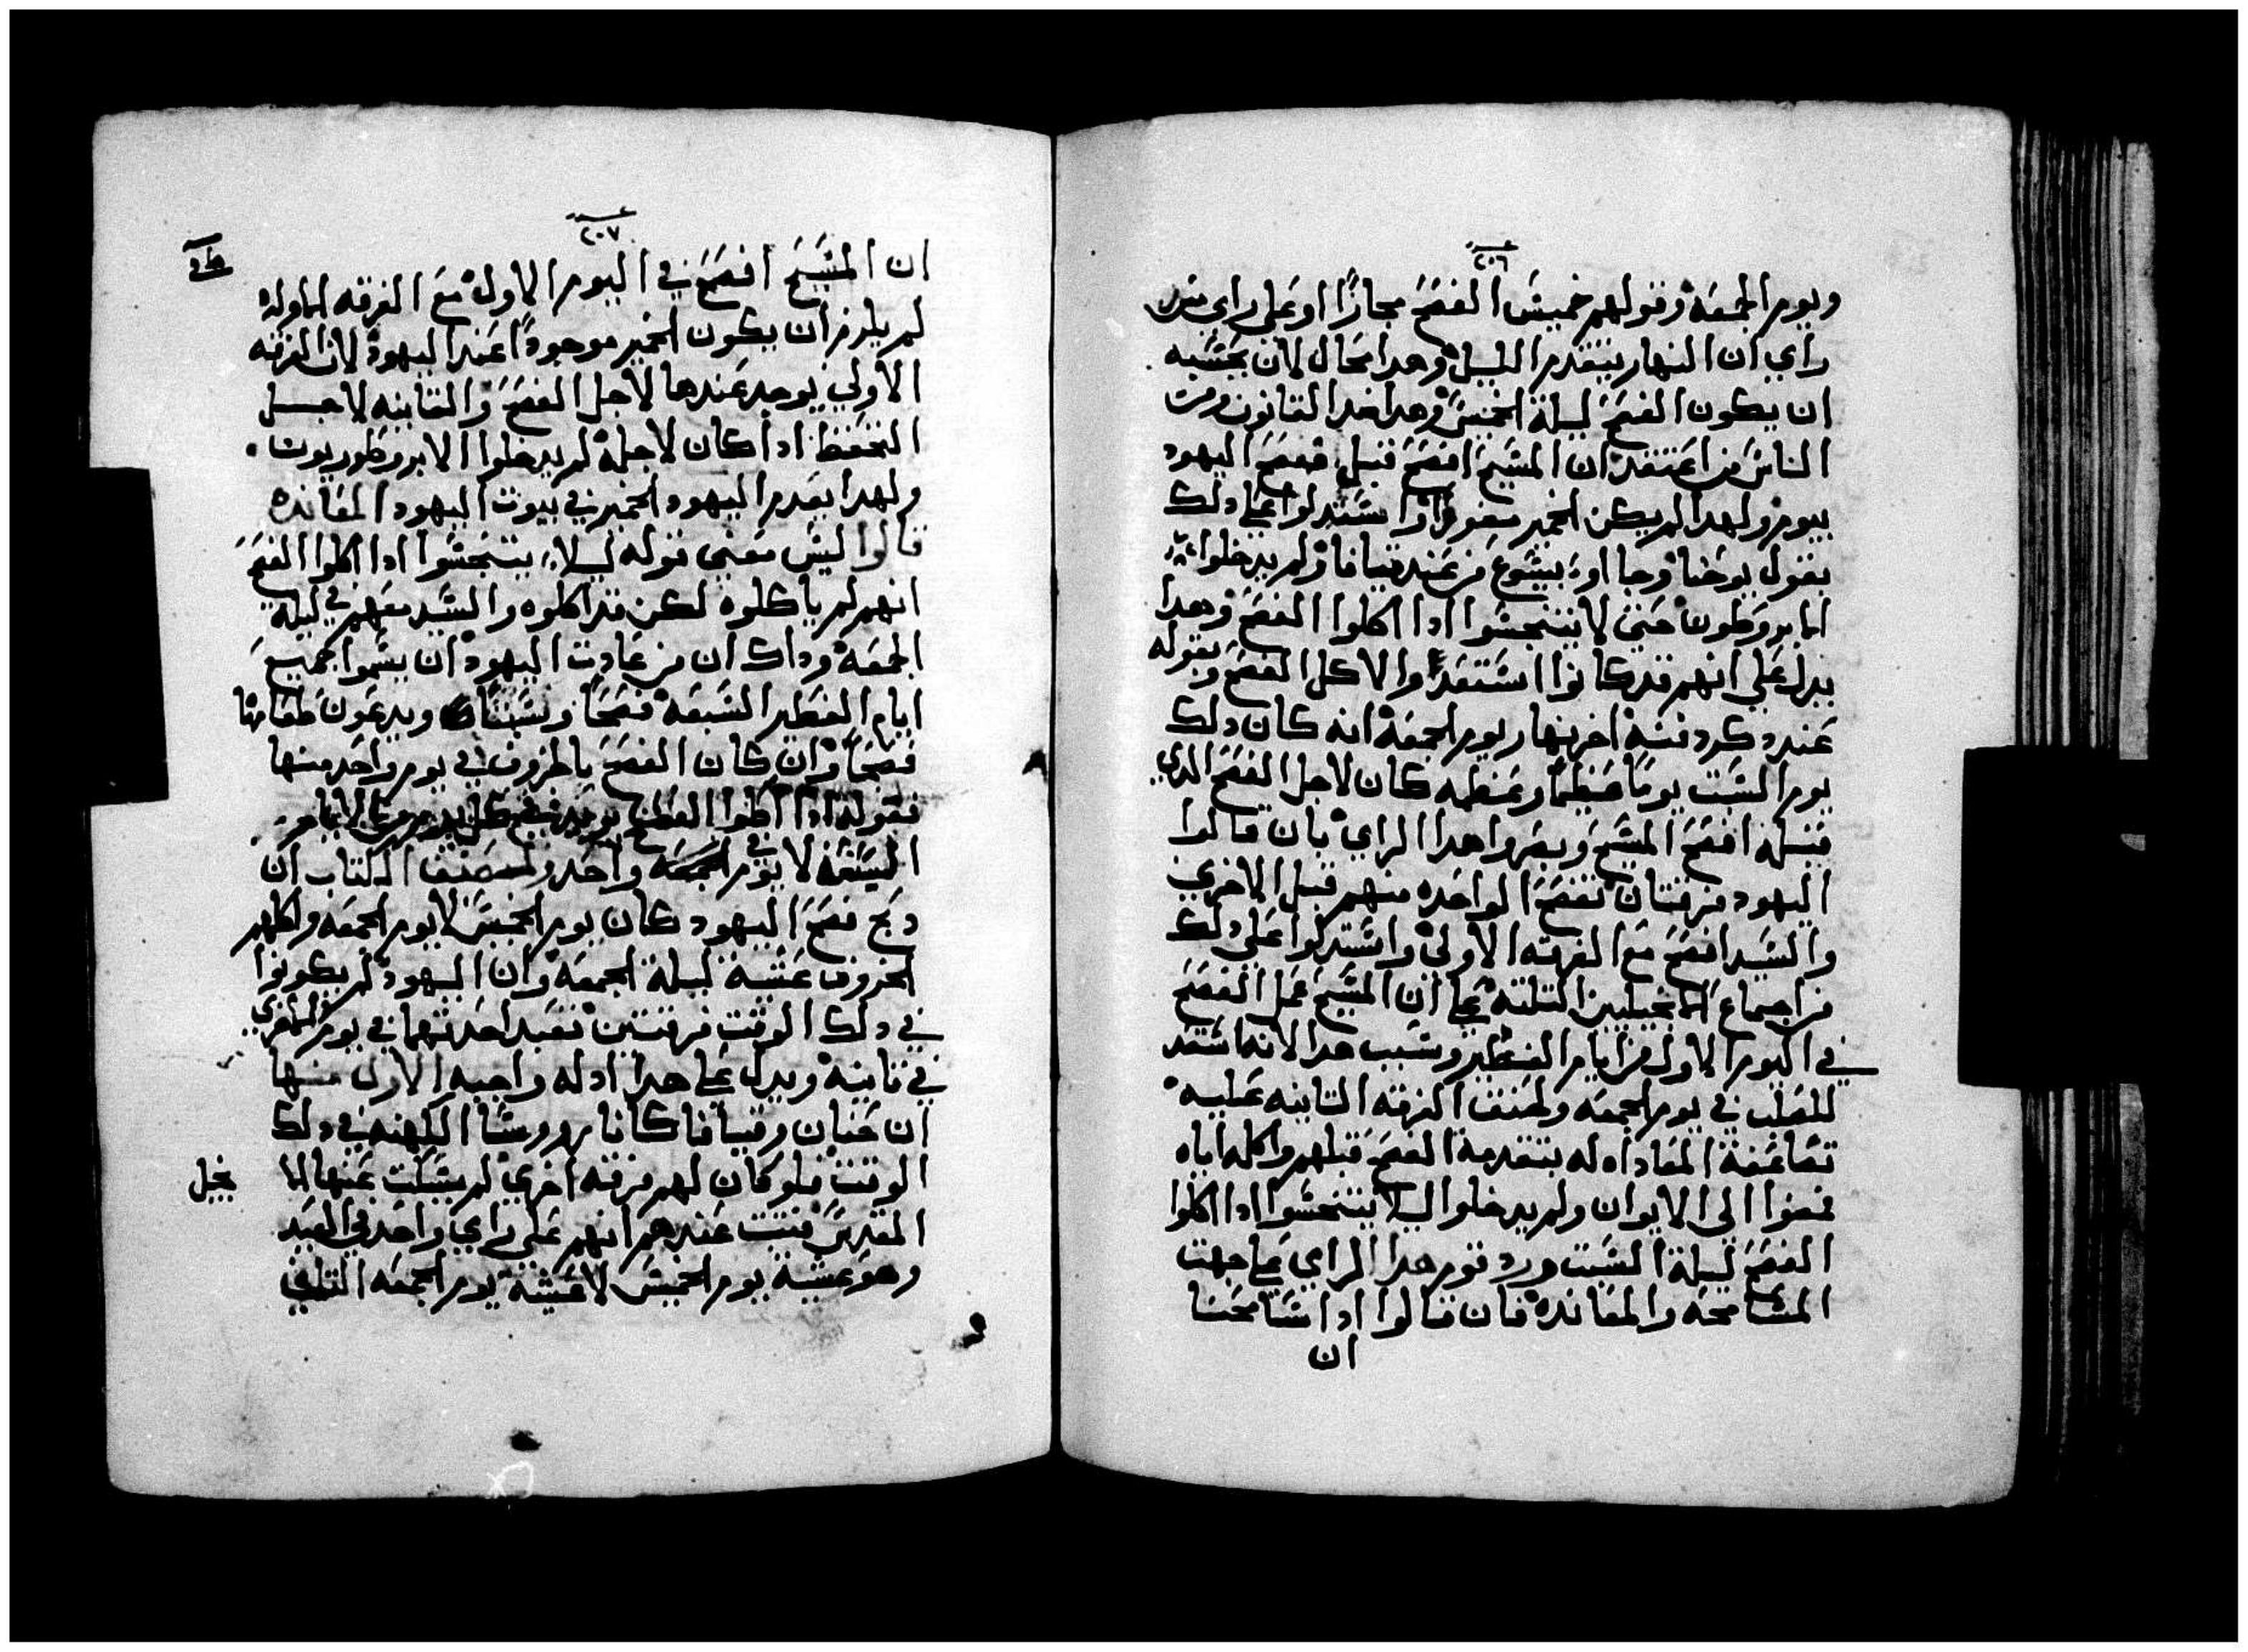 ٢٠٦
ويوم الجمعه وقولهم خميس الفصح مجازًا او على راي من
راي ان النهار يتقدم الليل وهدا محال لان بحسبه
ان يكون الفصح ليلة الخميس وهدا ضد القانون ومن
الناس من اعتقد ان المسيح افصح قبل فصح اليهود
بيوم ولهدا لم يكن الخمير واستدلوا على دلك
بقول يوحنا وجا اوا بيشوع من عند قيافا ولم يدخلوا
حتى لا يتنجسوا ادا اكلوا الفصح وهدا
يدل على انهم قد كانوا استعدوا لاكل الفصح وبقوله
عند دكر دفنه اخر نهار يوم الجمعه انه كان دلك
يوم السبت يومًا عظيمًا وعظمه كان لاجل الفصح الدي
قبله افصح المسيح هدا الراي بان قالوا
اليهود فرقتان تفصح الواحده منهم قبل الاخري
والسيد افصح مع الفرقه الاولي واستدلوا على دلك
من اجماع الانجيليين التلته على ان المسيح عمل الفصح
في اليوم الاول من ايام الفطير وسبب هدا لانه استعد
للصلب في يوم الجمعه الفرقه التانيه عليه
المقاد له بتقدمة الفصح قبلهم واكله اياه
فمضوا الى الايوان ولم يدخلوا ليلا يتنجسوا ادا اكلوا
الفصح ليلة السبت ورد قوم هدا الراي على جهت
المسامحه والمعانده فان قالوا ادا سامحنا
ان
٢٠٧
ان المسيح افصح في اليوم الاول مع الفرقه الاوله
لم يلزم ان يكون الخمير موجودًا عند اليهود لان الفرقه
الاولي يوجد عندها لاجل الفصح والتانيه لاجل
التحفظ ادا كان لاجله لم يدخلوا الابروطوريون
ولهدا يعدم اليهود الخمير في بيوت اليهود المعانده
قالوا ليس معني قوله ليلا يتنجسوا ادا اكلوا الفصح
انهم لم ياكلوه لكن قد اكلوه والسيد معهم في ليلة
الجمعه وداك ان من عادت اليهود ان يسموا جميع
ايام الفطير السبعه فصحًا وسبتًا ويدعون طعامها
فصحًا وان كان الفصح بالخروف في يوم واحد منها
فقوله ادا اكلوا الفصح يريد فصح كل يوم من الايام
السبعه لا في يوم واحد ولمصنف الكتاب ان
دبح فصح اليهود كان يوم الخميس لا يوم الجمعه واكلهم
الخروف عشية ليلة الجمعه وان اليهود لم يكونوا
في دلك الوقت فرقتين تعيد احدتهما في يوم والاخري
في تانيه ويدل على هدا ادله واجبه الاول منها
ان حنان وقيافا كانا روسا الكهنه في دلك
الوقت فلو كان لهم فرقه اخري لم يسكت عنها الانجيل
المقدس فتبت عندهم انهم على راي واحد في العيد
وهو عشية يوم الخميس لا عشية يوم الجمعه التاني